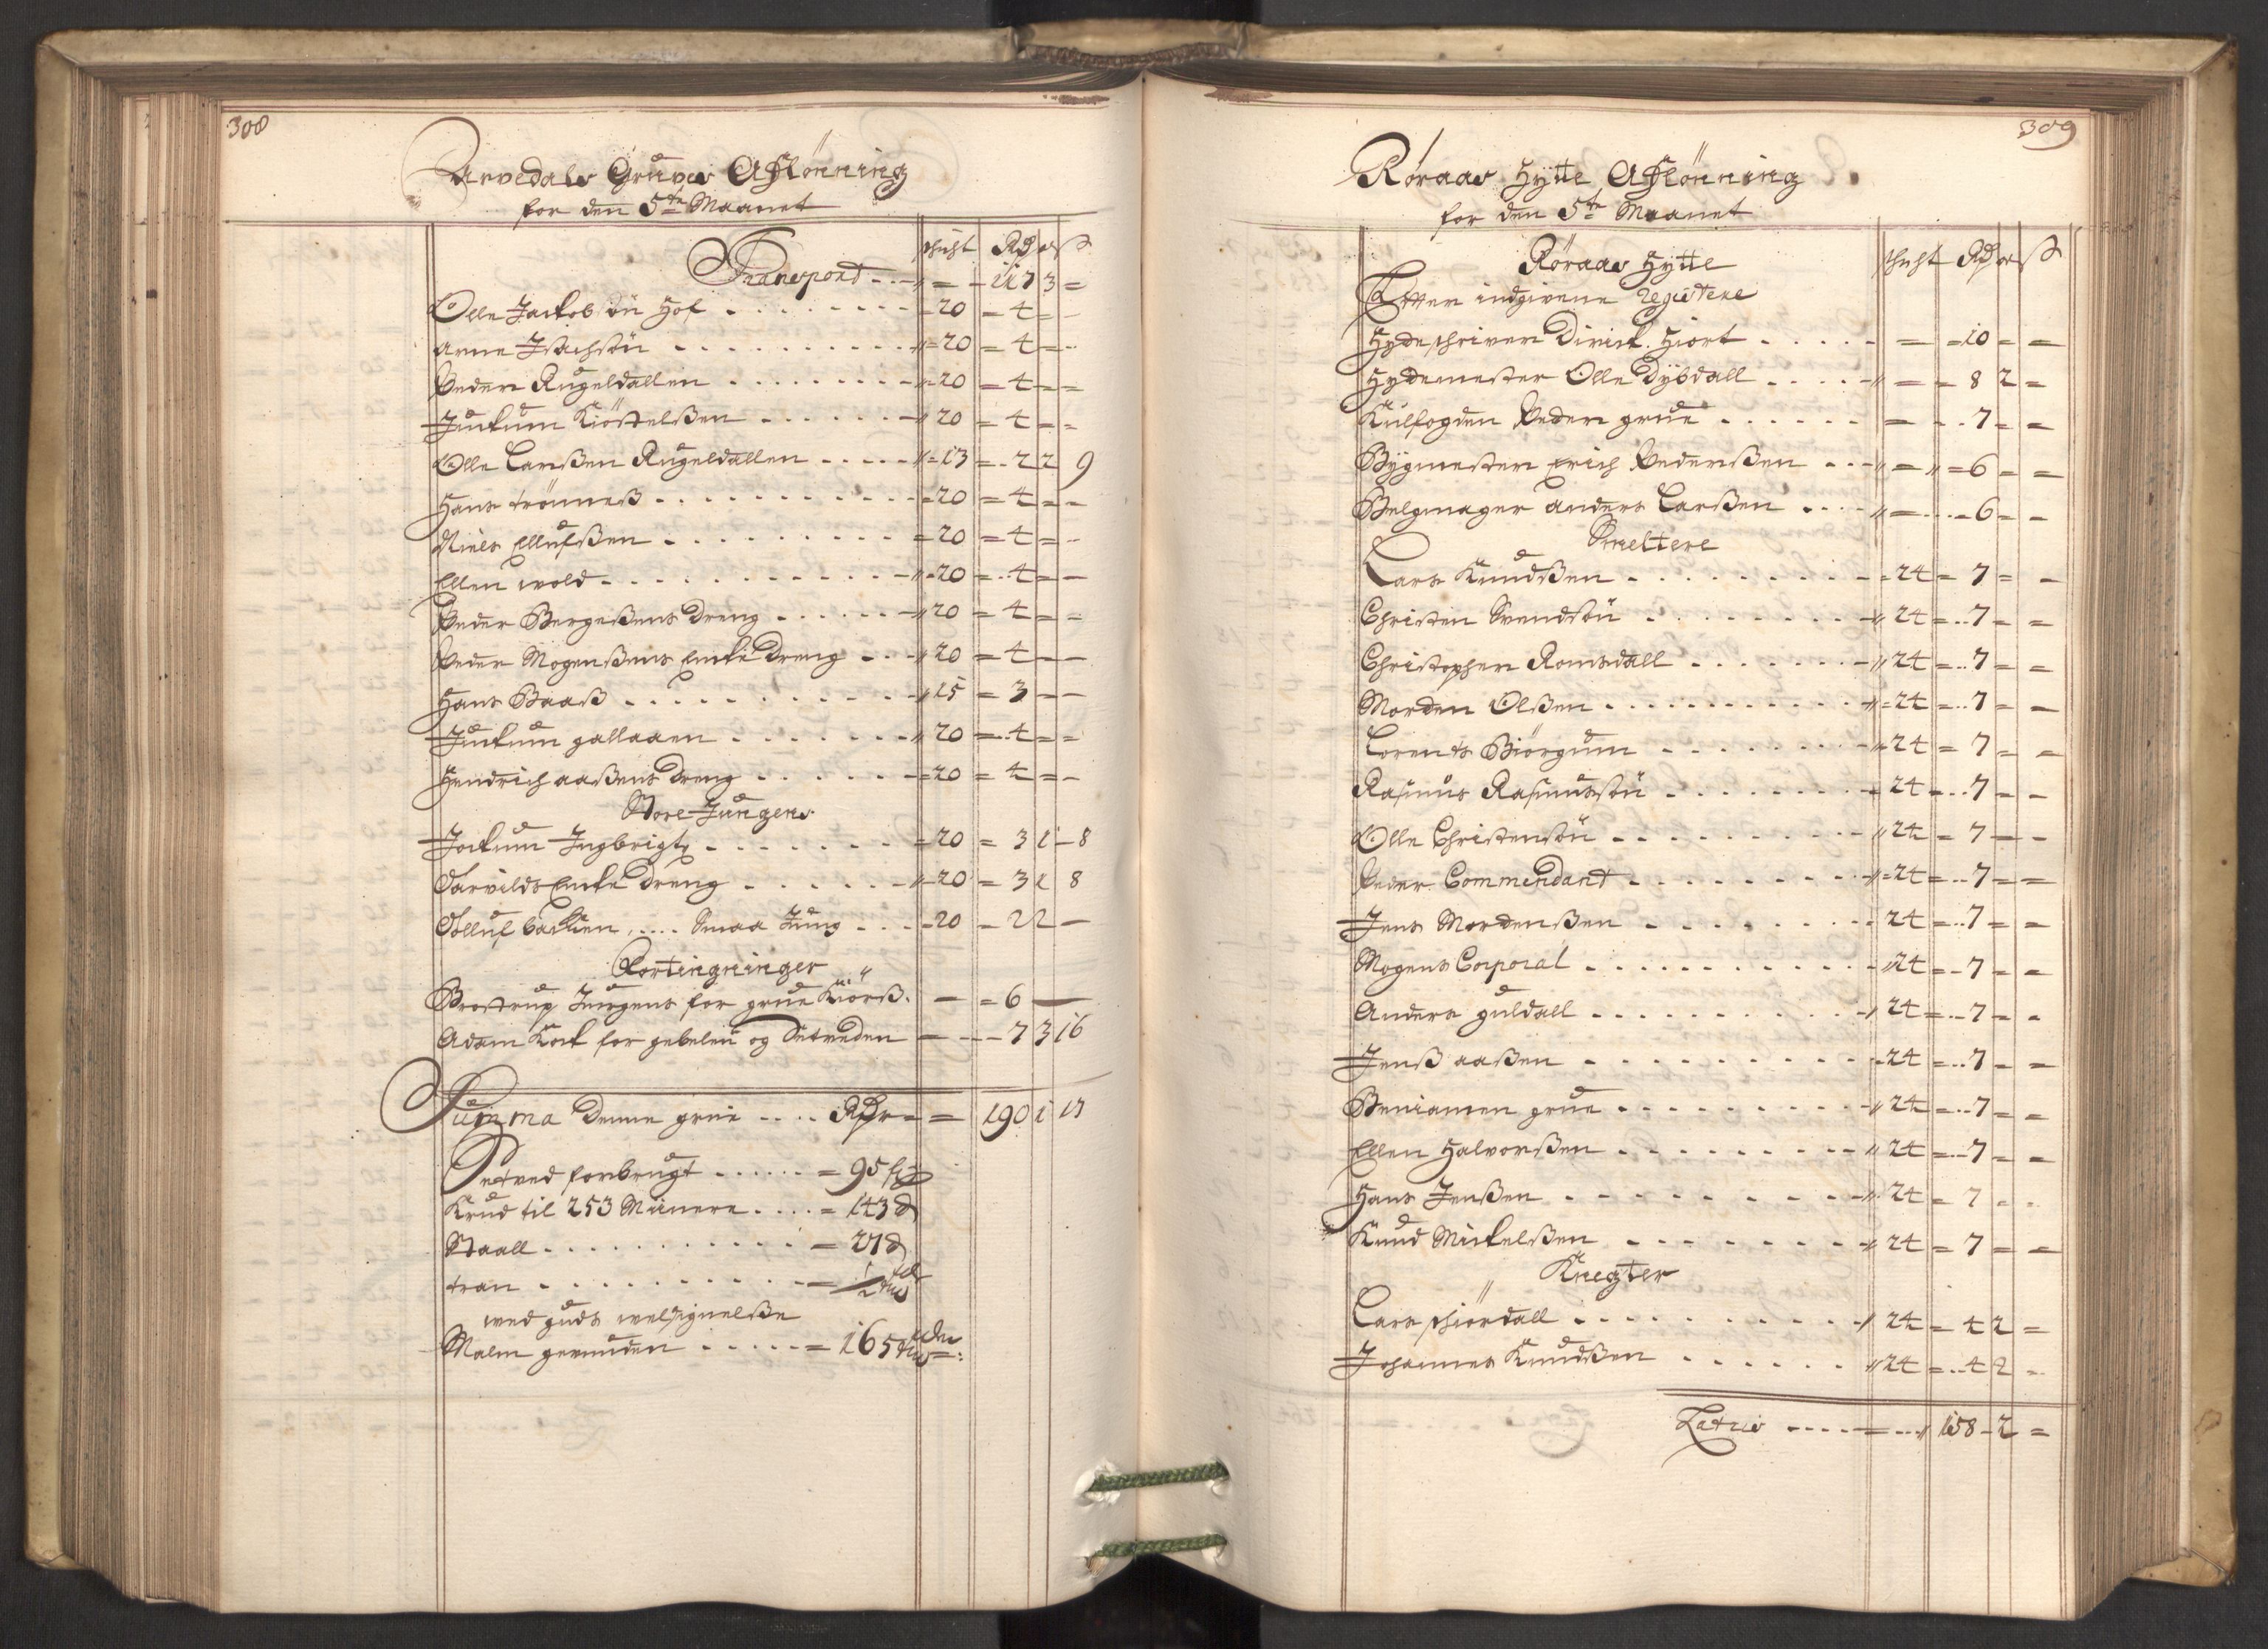 308
Arvedals Gruves Afflönning
for den 5te Maanet
schicht Rdr ort ß
Transport - - - = - 117 3 =
Olle Jackobsön Hof - 20 = 4 - -
Arne Isachsön - 20 = 4 = -
Peder Rugeldallen - 20 = 4 = =
Jockum Kiöstelßen - 20 = 4 = =
Olle Larßen Rugeldallen - 13 = 2 2 9
Hans trönneß - 20 = 4 = =
Niels Ellufßen - 20 = 4 = -
Ellen wold - 20 = 4 = -
Peder Bergeßens Dreng - 20 = 4 = =
Peder Mogenßens Encke Dreng - 20 = 4 - -
Hans Baaß - 15 = 3 - -
Jockum gallaaen - 20 = 4 = =
Hendrich aaßens Dreng - 20 = 4 = -
Store-Jungens
Jockum Ingbrigtß - 20 = 3 1 - 8
Tarvilds Encke Dreng - 20 = 3 1 8
Tolluf backen .... Smaa Jung - 20 - 2 2 -
Fortingninger
Brostrup Jürgens for grue Kiörß. - = 6 -
Adam Kock for gebeleü og Setveden - - 7 3 16
Summa Denne grue .... Rdr = = 190 1 17
Setved forbrugt ...... = 95 f
Krud til 253 Minere .... = 143 d
Staall .......... = 27 d
tran .......... = 1/2 tde
wed guds welsignelße
Malm gevunden ..... = 165 tdr =:
309
Röraas Hytte Afflönning
for den 5te Maanet
Röraas Hytte schicht Rdr ort ß
Efter indgivene Registere
Hydeschriver Direct. Hiort - = 10 = =
Hydemester Olle Dybdall - = 8 2 =
Kulfogden Peder grue - - 7 = =
Bygmester Erich Pederßen - = 6 = -
Belgmager anders Larßen - - 6 = -
Smeltere
Lars Knudßen - 24 = 7 = -
Christen Svendsön - 24 = 7 = =
Christopher Romsdall - 24 = 7 = =
Morden Olßen - 24 = 7 = -
Lorents Biörgum - 24 = 7 = =
Rasmus Rasmusön - 24 = 7 = -
Olle Christensön - 24 = 7 = -
Peder Commendant - 24 = 7 = =
Jens Mordenßen - 24 = 7 = =
Mogens Corporal - 24 = 7 = =
Anders guldall - 24 = 7 = =
Jenß aaßen - 24 = 7 = =
Beniamen grue - 24 = 7 = =
Ellen Halvorßen - 24 = 7 = =
Hans Jenßen - 24 = 7 = =
Knud Mickelßen - 24 = 7 = =
Knegter
Lars schiördall - 24 = 4 2 =
Johannes Knudßen - 24 = 4 2 =
Latus - - - 158 - 2 =